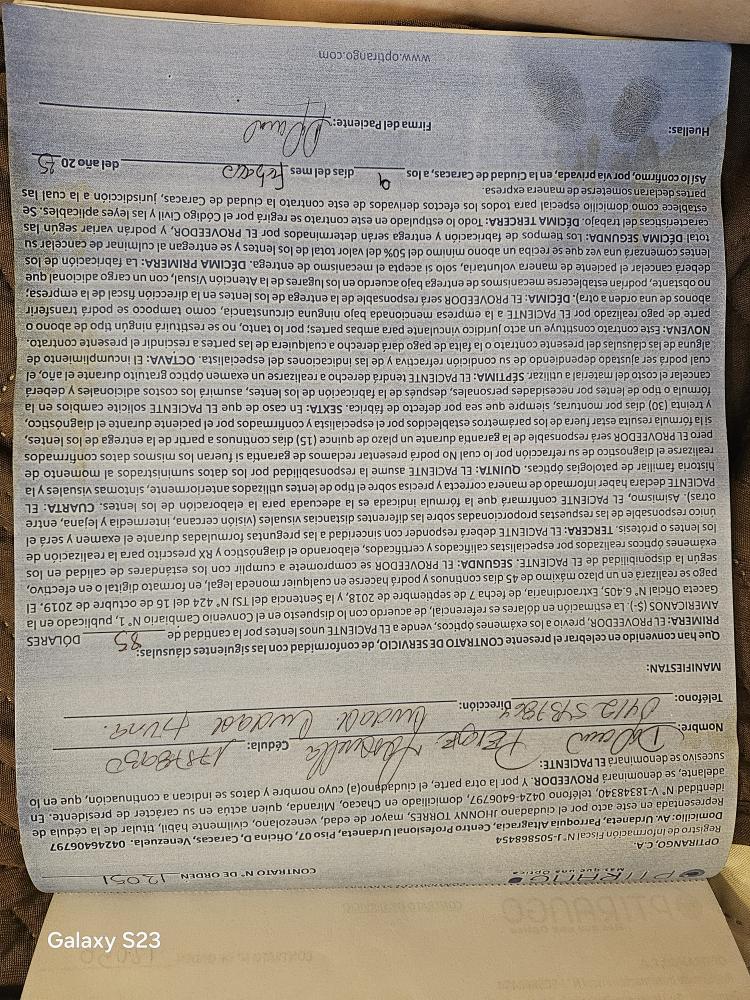 OPTIRANGO
Más que una Óptica
CONTRATO N° DE ORDEN 12051
OPTIRANGO, C.A.
Registro de Información Fiscal N° J-505868454
Domicilio: Av. Urdaneta, Parroquia Altagracia, Centro Profesional Urdaneta, Piso 07, Oficina D, Caracas, Venezuela. 04246406797
Representada en este acto por el ciudadano JHONNY TORRES, mayor de edad, venezolano, civilmente hábil, titular de la cédula de
identidad N° V-18348340, teléfono 0424-6406797, domiciliado en Chacao, Miranda, quien actúa en su carácter de presidente. En
adelante, se denominará PROVEEDOR. Y por la otra parte, el ciudadano(a) cuyo nombre y datos se indican a continuación, que en lo
sucesivo se denominará EL PACIENTE:
Nombre: Cédula: 17878930
Teléfono: 0412 5437864 Dirección: Ciudad
MANIFIESTAN:
Que han convenido en celebrar el presente CONTRATO DE SERVICIO, de conformidad con las siguientes cláusulas:
PRIMERA: EL PROVEEDOR, previo a los exámenes ópticos, vende a EL PACIENTE unos lentes por la cantidad de 85 DÓLARES
AMERICANOS ($). La estimación en dólares es referencial, de acuerdo con lo dispuesto en el Convenio Cambiario N° 1, publicado en la
Gaceta Oficial N° 6.405, Extraordinaria, de fecha 7 de septiembre de 2018, y la Sentencia del TSJ N° 424 del 16 de octubre de 2019. El
pago se realizará en un plazo máximo de 45 días continuos y podrá hacerse en cualquier moneda legal, en formato digital o en efectivo,
según la disponibilidad de EL PACIENTE. SEGUNDA: EL PROVEEDOR se compromete a cumplir con los estándares de calidad en los
exámenes ópticos realizados por especialistas calificados y certificados, elaborando el diagnóstico y RX prescrito para la realización de
los lentes o prótesis. TERCERA: EL PACIENTE deberá responder con sinceridad a las preguntas formuladas durante el examen y será el
único responsable de las respuestas proporcionadas sobre las diferentes distancias visuales (visión cercana, intermedia y lejana, entre
otras). Asimismo, EL PACIENTE confirmará que la fórmula indicada es la adecuada para la elaboración de los lentes. CUARTA: EL
PACIENTE declara haber informado de manera correcta y precisa sobre el tipo de lentes utilizados anteriormente, síntomas visuales y la
historia familiar de patologías ópticas. QUINTA: EL PACIENTE asume la responsabilidad por los datos suministrados al momento de
realizarse el diagnostico de su refracción por lo cual No podrá presentar reclamos de garantía si fueran los mismos datos confirmados
pero EL PROVEEDOR será responsable de la garantía durante un plazo de quince (15) días continuos a partir de la entrega de los lentes,
si la fórmula resulta estar fuera de los parámetros establecidos por el especialista y confirmados por el paciente durante el diagnóstico,
y treinta (30) días por monturas, siempre que sea por defecto de fábrica. SEXTA: En caso de que EL PACIENTE solicite cambios en la
fórmula o tipo de lentes por necesidades personales, después de la fabricación de los lentes, asumirá los costos adicionales y deberá
cancelar el costo del material a utilizar. SÉPTIMA: EL PACIENTE tendrá derecho a realizarse un examen óptico gratuito durante el año, el
cual podrá ser ajustado dependiendo de su condición refractiva y de las indicaciones del especialista. OCTAVA: El incumplimiento de
alguna de las cláusulas del presente contrato o la falta de pago dará derecho a cualquiera de las partes a rescindir el presente contrato.
NOVENA: Este contrato constituye un acto jurídico vinculante para ambas partes; por lo tanto, no se restituirá ningún tipo de abono o
parte de pago realizado por EL PACIENTE a la empresa mencionada bajo ninguna circunstancia, como tampoco se podrá transferir
abonos de una orden a otra). DÉCIMA: EL PROVEEDOR será responsable de la entrega de los lentes en la dirección fiscal de la empresa;
no obstante, podrán establecerse mecanismos de entrega bajo acuerdo en los lugares de la Atención Visual, con un cargo adicional que
deberá cancelar el paciente de manera voluntaria, solo si acepta el mecanismo de entrega. DÉCIMA PRIMERA: La fabricación de los
lentes comenzará una vez que se reciba un abono mínimo del 50% del valor total de los lentes y se entregan al culminar de cancelar su
total DÉCIMA SEGUNDA: Los tiempos de fabricación y entrega serán determinados por EL PROVEEDOR, y podrán variar según las
características del trabajo. DÉCIMA TERCERA: Todo lo estipulado en este contrato se regirá por el Código Civil y las leyes aplicables. Se
establece como domicilio especial para todos los efectos derivados de este contrato la ciudad de Caracas, jurisdicción a la cual las
partes declaran someterse de manera expresa.
Así lo confirmo, por vía privada, en la Ciudad de Caracas, a los 9 días del mes Febrero del año 20 25
Huellas:
Firma del Paciente:
www.optirango.com
Galaxy S23